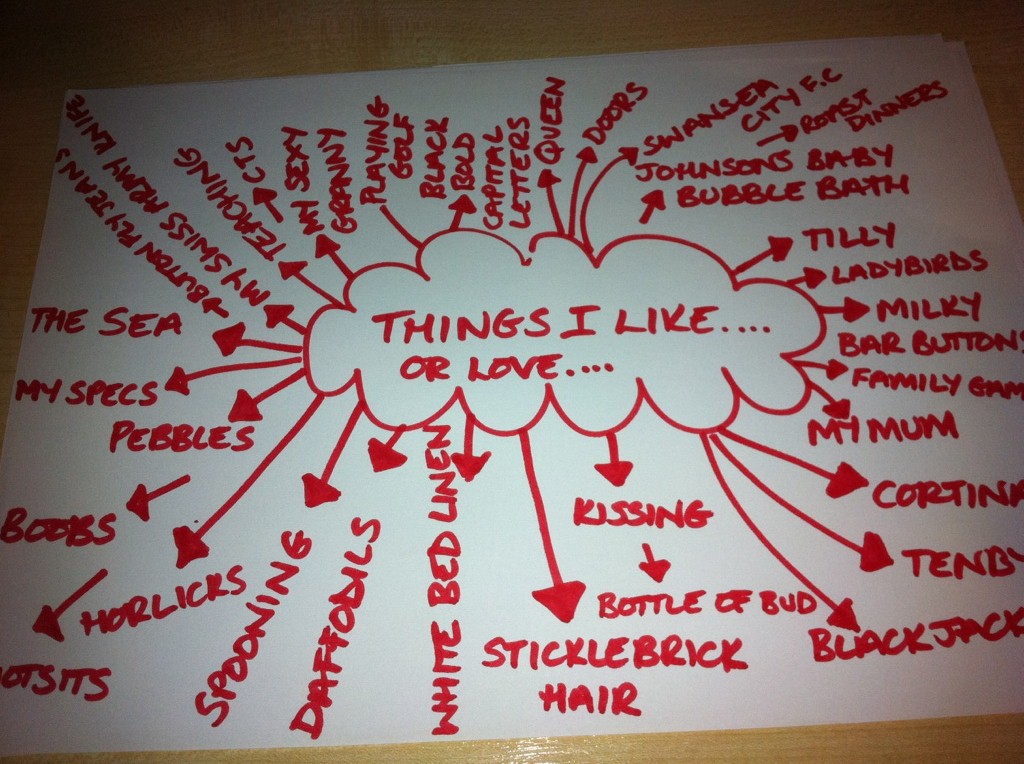 THINGS I LIKE....
OR LOVE....
MY SWISS ARMY KNIFE
BUTTON FLY JEANS
TEACHING
CTS
MY SEXY
GRANNY
PLAYING
GOLF
BLACK
BOLD
CAPITAL
LETTERS
QUEEN
DOORS
SWANSEA
CITY F.C
ROAST
DINNERS
JOHNSONS BABY
BUBBLE BATH
TILLY
LADYBIRDS
MILKY
BAR BUTTONS
FAMILY GAM
MY MUM
CORTINA
TENBY
BLACKJACK
KISSING
BOTTLE OF BUD
STICKLEBRICK
HAIR
WHITE BED LINEN
DAFFODILS
SPOONING
HORLICKS
BOOBS
OTSITS
PEBBLES
MY SPECS
THE SEA